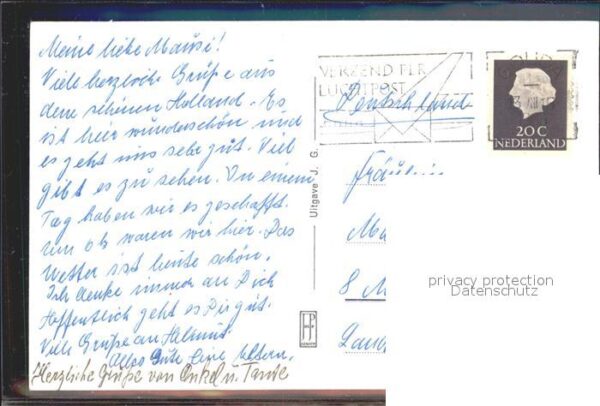 Meine liebe Mausi!
Viele herzliche Grüße aus
dem schönen Holland. Es
ist hier wunderschön und
es geht uns sehr gut. Viel
gibt es zu sehen. In einem
Tag haben wir es geschafft
um waren wir hier. Das
Wetter ist heute schön.
Ich denke immer an Dich
Hoffentlich geht es Dir gut.
Viele Grüße an Helmut.
Alles Gute Deine Eltern.
Herzliche Grüße von Onkel u. Tante
Uitgave J. G.
HP
VERZEND PER
LUCHTPOST
Deutschland
20 C
NEDERLAND
Fräulein
Ma
8 M
Land
privacy protection
Datenschutz